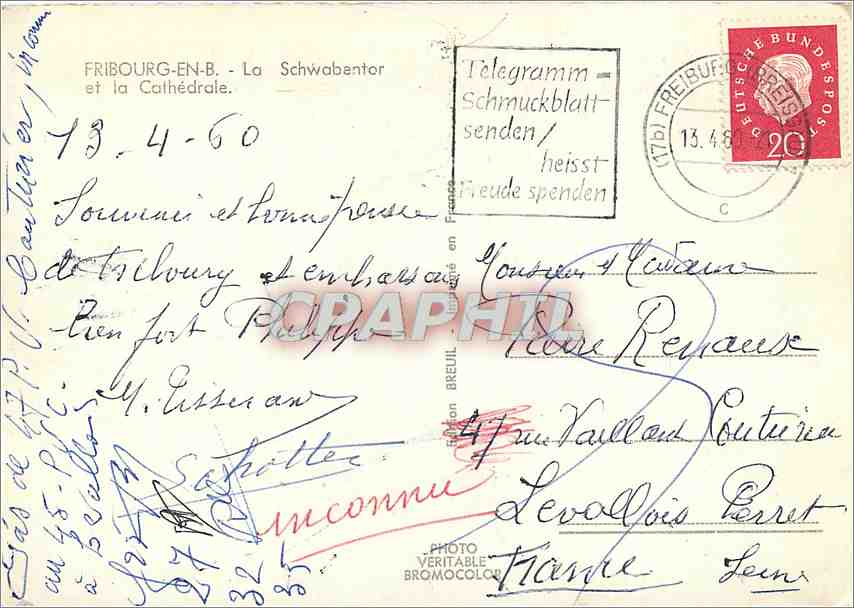 FRIBOURG-EN-B. - La Schwabentor
et la Cathédrale.
13-4-60
Souvenir et bonne pensée
de Fribourg et embrassons
bien fort Philippe
M. Tisserand
Telegramm-
Schmuckblatt-
senden/
heisst
Freude spenden
(17b) FREIBURG (BREISGAU)
13.4.60
c
DEUTSCHE BUNDESPOST
20
Monsieur et Madame
Pierre
47 rue Vaillant Couturier
Levallois Perret
France Seine
inconnu
27
32
35
au 45-
à
47 P. V. Couturier, inconnu
Edition BREUIL Imprimé en France
PHOTO
VERITABLE
BROMOCOLOR
CPAPHIL